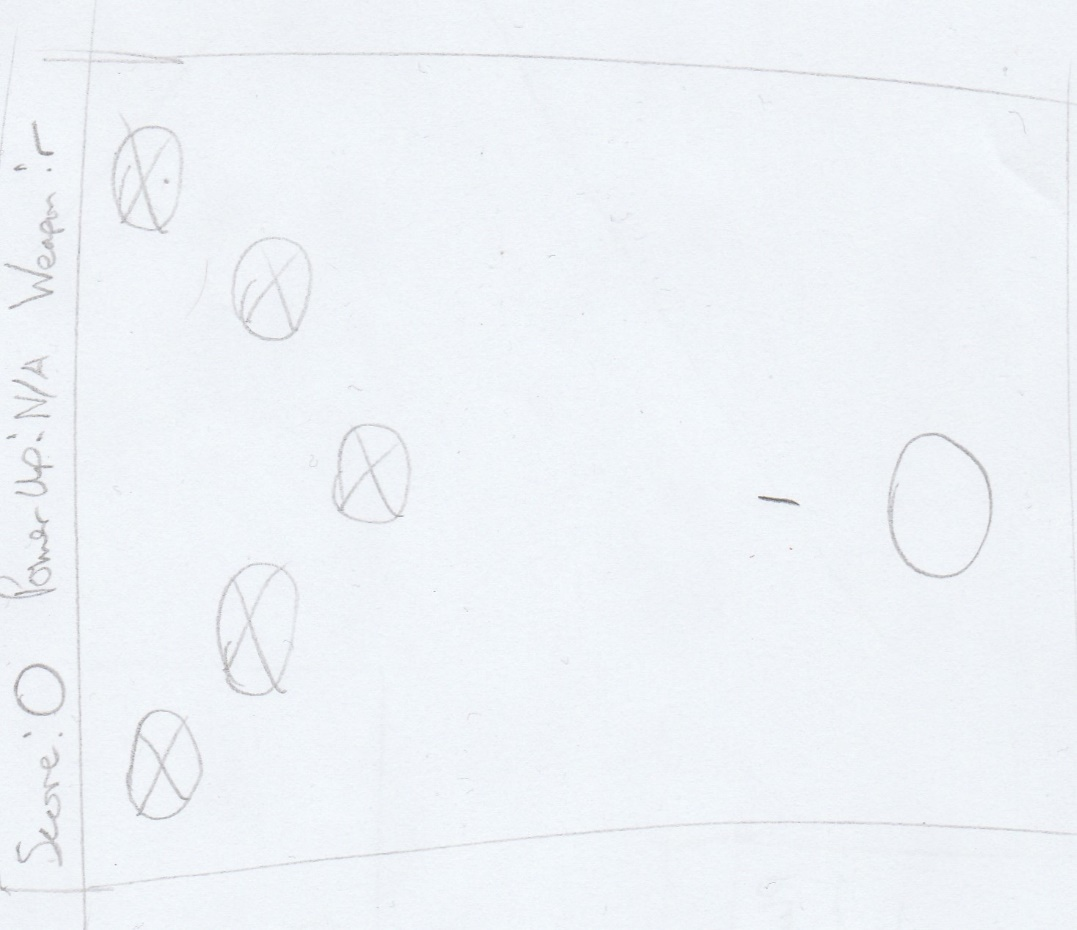 Score: 0 Power Up: N/A Weapon: r